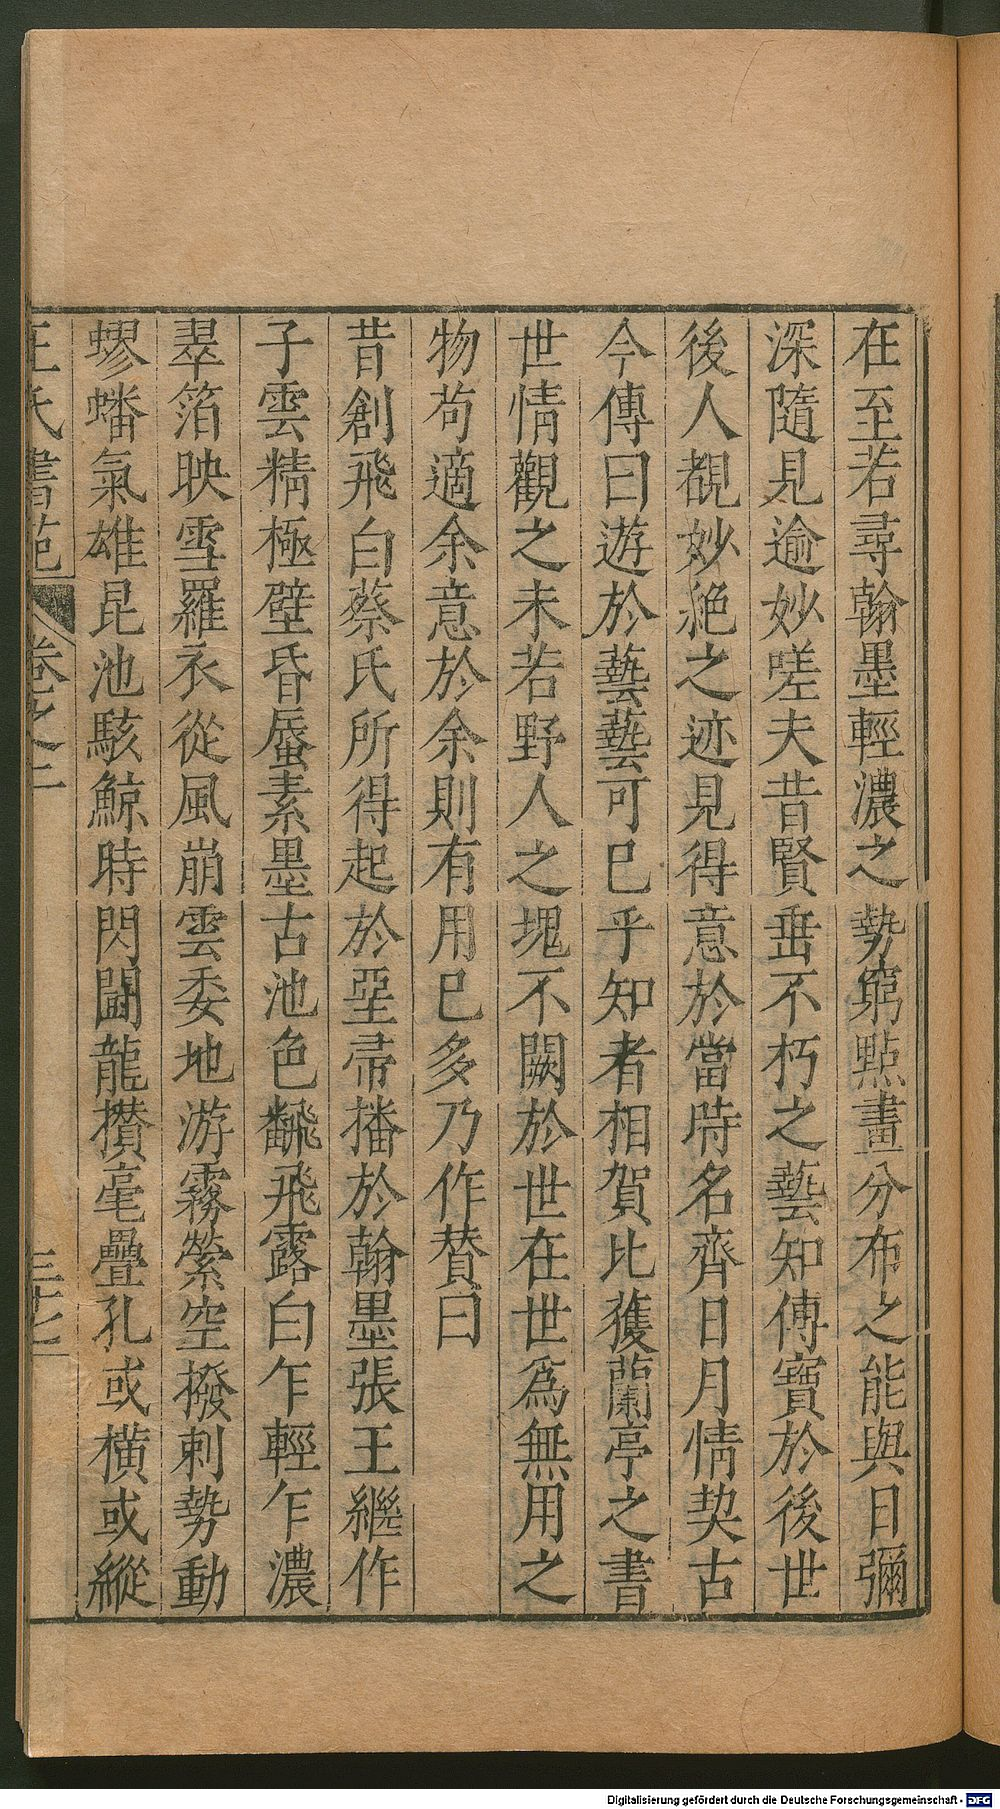 在至若尋翰墨輕濃之勢窮點畫分布之能與日彌
深隨見逾妙嗟夫昔賢垂不朽之藝知傳寶於後世
後人覩妙絕之迹見得意於當時名齊日月情契古
今傳曰遊於藝藝可巳乎知者相賀比獲蘭亭之書
世情觀之未若野人之塊不闕於世在世為無用之
物苟適余意於余則有用巳多乃作贊曰
昔創飛白蔡氏所得起於堊帚播於翰墨張王繼作
子雲精極壁昏蜃素墨古池色飜飛露白乍輕乍濃
翠箔映雪羅衣從風崩雲委地游霧縈空撥剌勢動
蟉蟠氣雄昆池駭鯨時閃闘龍攢毫疊孔或橫或縱
王氏書苑 卷之二 三十七
Digitalisierung gefördert durch die Deutsche Forschungsgemeinschaft - DFG